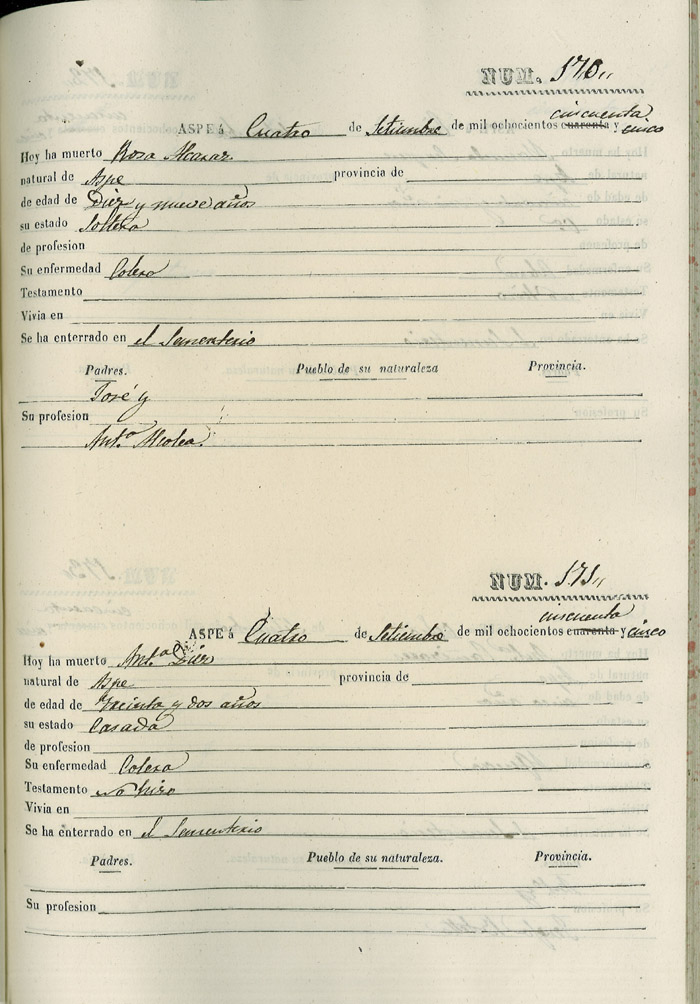 NUM. 170,,
cincuenta
ASPE á Cuatro de Setiembre de mil ochocientos cuarenta y cinco
Hoy ha muerto Rosa Alcaraz
natural de Aspe provincia de
de edad de Diez y nueve años
su estado Soltera
de profesion
Su enfermedad Colera
Testamento
Vivia en
Se ha enterrado en el Sementerio
Padres. Pueblo de su naturaleza Provincia.
José y
Su profesion
Ant.ª Alcolea.
NUM. 171,,
cincuenta
ASPE á Cuatro de Setiembre de mil ochocientos cuarenta y cinco
Hoy ha muerto Ant.ª Diez
natural de Aspe provincia de
de edad de Treinta y dos años
su estado Casada
de profesion
Su enfermedad Colera
Testamento no hizo
Vivia en
Se ha enterrado en el Sementerio
Padres. Pueblo de su naturaleza. Provincia.
Su profesion